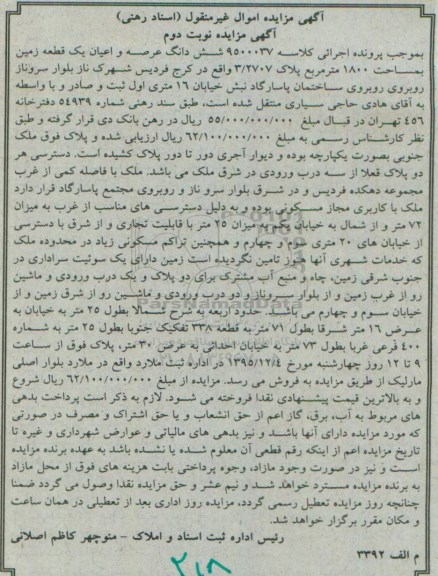 آگهی مزایده اموال غیرمنقول (اسناد رهنی)
آگهی مزایده نوبت دوم
بموجب پرونده اجرائی کلاسه ۹۵۰۰۰۳۷ شش دانگ عرصه و اعیان یک قطعه زمین
بمساحت ۱۸۰۰ مترمربع پلاک ۳/۲۷۰۷ واقع در کرج فردیس شهرک ناز بلوار سروناز
روبروی روبروی ساختمان پاسارگاد نبش خیابان ۱۶ متری اول ثبت و صادر و با واسطه
به آقای هادی حاجی سیاری منتقل شده است، طبق سند رهنی شماره ۵۴۹۳۹ دفترخانه
۴۵۶ تهران در قبال مبلغ ۵۵/۰۰۰/۰۰۰/۰۰۰ ریال در رهن بانک دی قرار گرفته و طبق
نظر کارشناس رسمی به مبلغ ۶۲/۱۰۰/۰۰۰/۰۰۰ ریال ارزیابی شده و پلاک فوق ملک
جنوبی بصورت یکپارچه بوده و دیوار آجری دور تا دور پلاک کشیده است. دسترسی هر
دو پلاک فعلا از سه درب ورودی در شرق ملک می باشد. ملک با فاصله کمی از غرب
مجموعه دهکده فردیس و در شرق بلوار سرو ناز و روبروی مجتمع پاسارگاد قرار دارد
ملک با کاربری مجاز مسکونی بوده و به دلیل دسترسی های مناسب از غرب به میزان
۷۲ متر و از شمال به خیابان یکم به میزان ۲۵ متر با قابلیت تجاری و از شرق با دسترسی
از خیابان های ۲۰ متری سوم و چهارم و همچنین تراکم مسکونی زیاد در محدوده ملک
که خدمات شهری آنها هنوز تامین نگردیده است زمین دارای یک سوئیت سراداری در
جنوب شرقی زمین، چاه و منبع آب مشترک برای دو پلاک و یک درب ورودی و ماشین
رو از غرب زمین و از بلوار سروناز و دو درب ورودی و ماشین رو از شرق زمین و از
خیابان سوم و چهارم می باشند. حدود اربعه به شرح شمالا بطول ۲۵ متر به خیابان به
عرض ۱۶ متر شرقا بطول ۷۱ متر به قطعه ۳۳۸ تفکیک جنوبا بطول ۲۵ متر به شماره
۴۰۰ فرعی غربا بطول ۷۳ متر به خیابان احداثی به عرض ۳۰ متر، پلاک فوق از ساعت
۹ تا ۱۲ روز چهارشنبه مورخ ۱۳۹۵/۱۲/۴ در اداره ثبت ملارد واقع در ملارد بلوار اصلی
مارلیک از طریق مزایده به فروش می رسد. مزایده از مبلغ ۶۲/۱۰۰/۰۰۰/۰۰۰ ریال شروع
و به بالاترین قیمت پیشنهادی نقدا فروخته می شود. لازم به ذکر است پرداخت بدهی
های مربوط به آب، برق، گاز اعم از حق انشعاب و یا حق اشتراک و مصرف در صورتی
که مورد مزایده دارای آنها باشد و نیز بدهی های مالیاتی و عوارض شهرداری و غیره تا
تاریخ مزایده اعم از اینکه رقم قطعی آن معلوم شده یا نشده باشد به عهده برنده مزایده
است و نیز در صورت وجود مازاد، وجوه پرداختی بابت هزینه های فوق از محل مازاد
به برنده مزایده مسترد خواهد شد و نیم عشر و حق مزایده نقدا وصول می گردد ضمنا
چنانچه روز مزایده تعطیل رسمی گردد، مزایده روز اداری بعد از تعطیلی در همان ساعت
و مکان مقرر برگزار خواهد شد.
رئیس اداره ثبت اسناد و املاک - منوچهر کاظم اصلانی
م الف ۳۳۹۲
۲۱۸